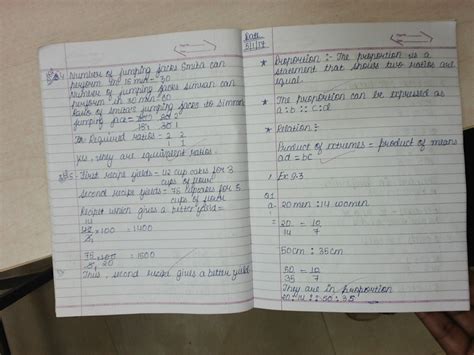 Number of jumping jacks Smita can
perform in 15 min = 30
Number of jumping jacks Simran can
perform in 30 min = 60
Ratio of Smita's jumping jacks to Simran
jumping
The Required ratios = 2 2
1 1
yes, they are equivalent ratios.
First recipe yields = 42 cup cakes for 3
cups of flour
Second recipe yields = 75 cupcakes for 5
cups of flour
Recipe which gives a better yield =
14
42 × 100 = 1400
3
75 × 100 = 1500
5, 20
Thus, second recipe gives a better yield
Date
5/1/18
★ Proportion :- The proportion is a
statement that shows two ratios are
equal.
★ The proportion can be expressed as
a : b :: c : d
★ Relation :
Product of extremes = product of means
ad = bc
Ex 9.3
Q1
a 20 men : 14 women
= 20 = 10
14 7
50cm : 35cm
50 = 10
35 7
They are in proportion
20 : 14 :: 50 : 35